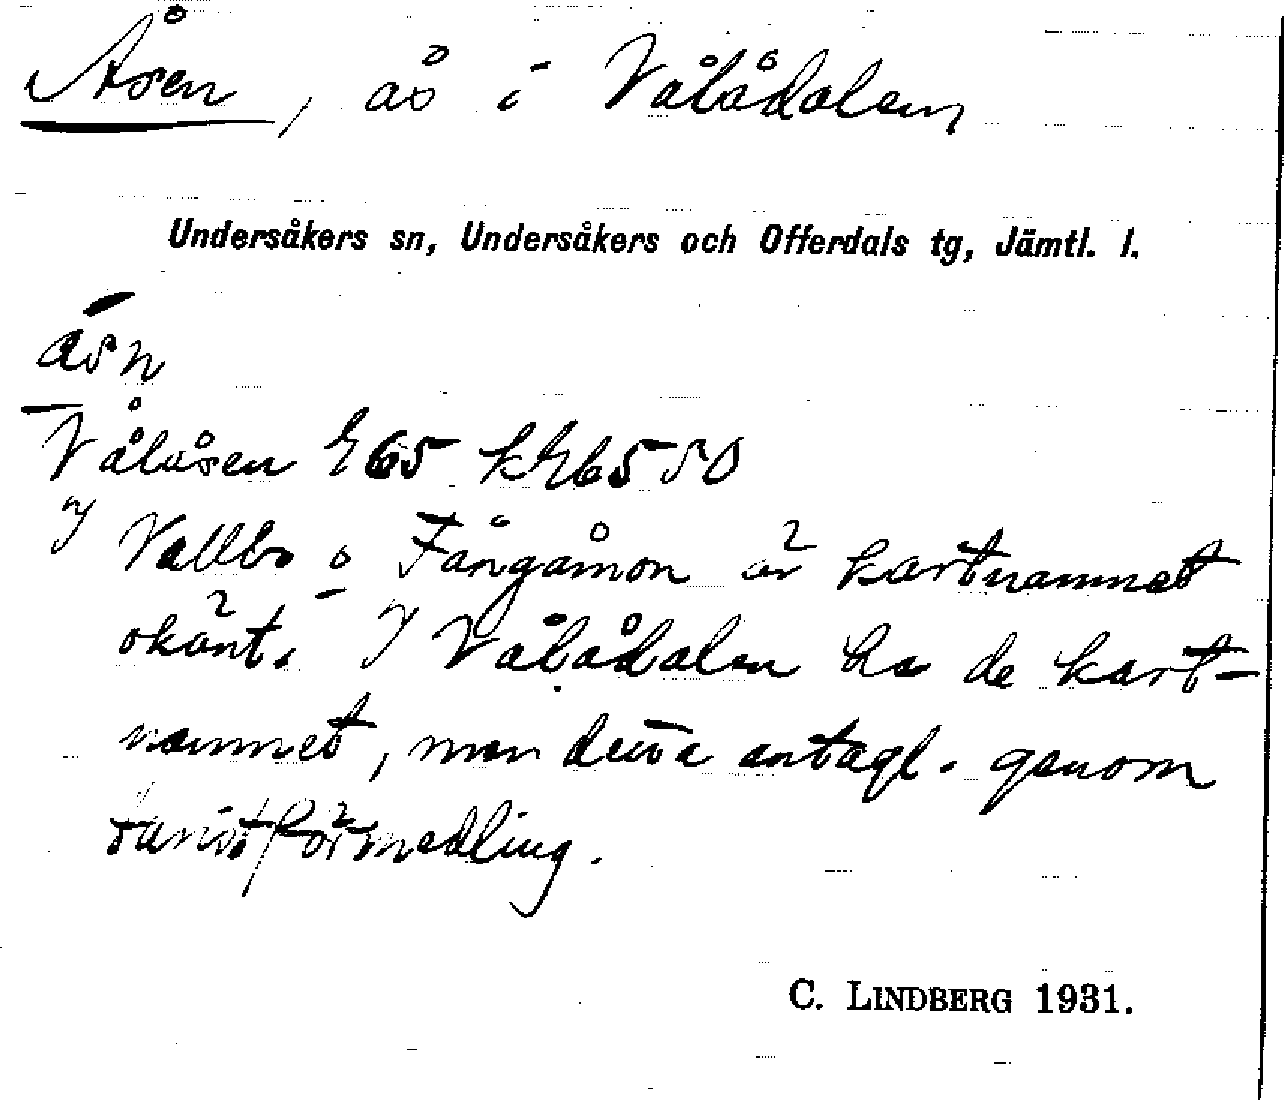 Åsen, ås i Vålådalen
Undersåkers sn, Undersåkers och Offerdals tg, Jämtl. l.
åsn
Vålåsen E65 kE6550
I Vallbo o Fångåmon är kartnamnet
okänt. I Vålådalen ha de kart-
namnet, men detta antagl. genom
turistförmedling.
C. LINDBERG 1931.